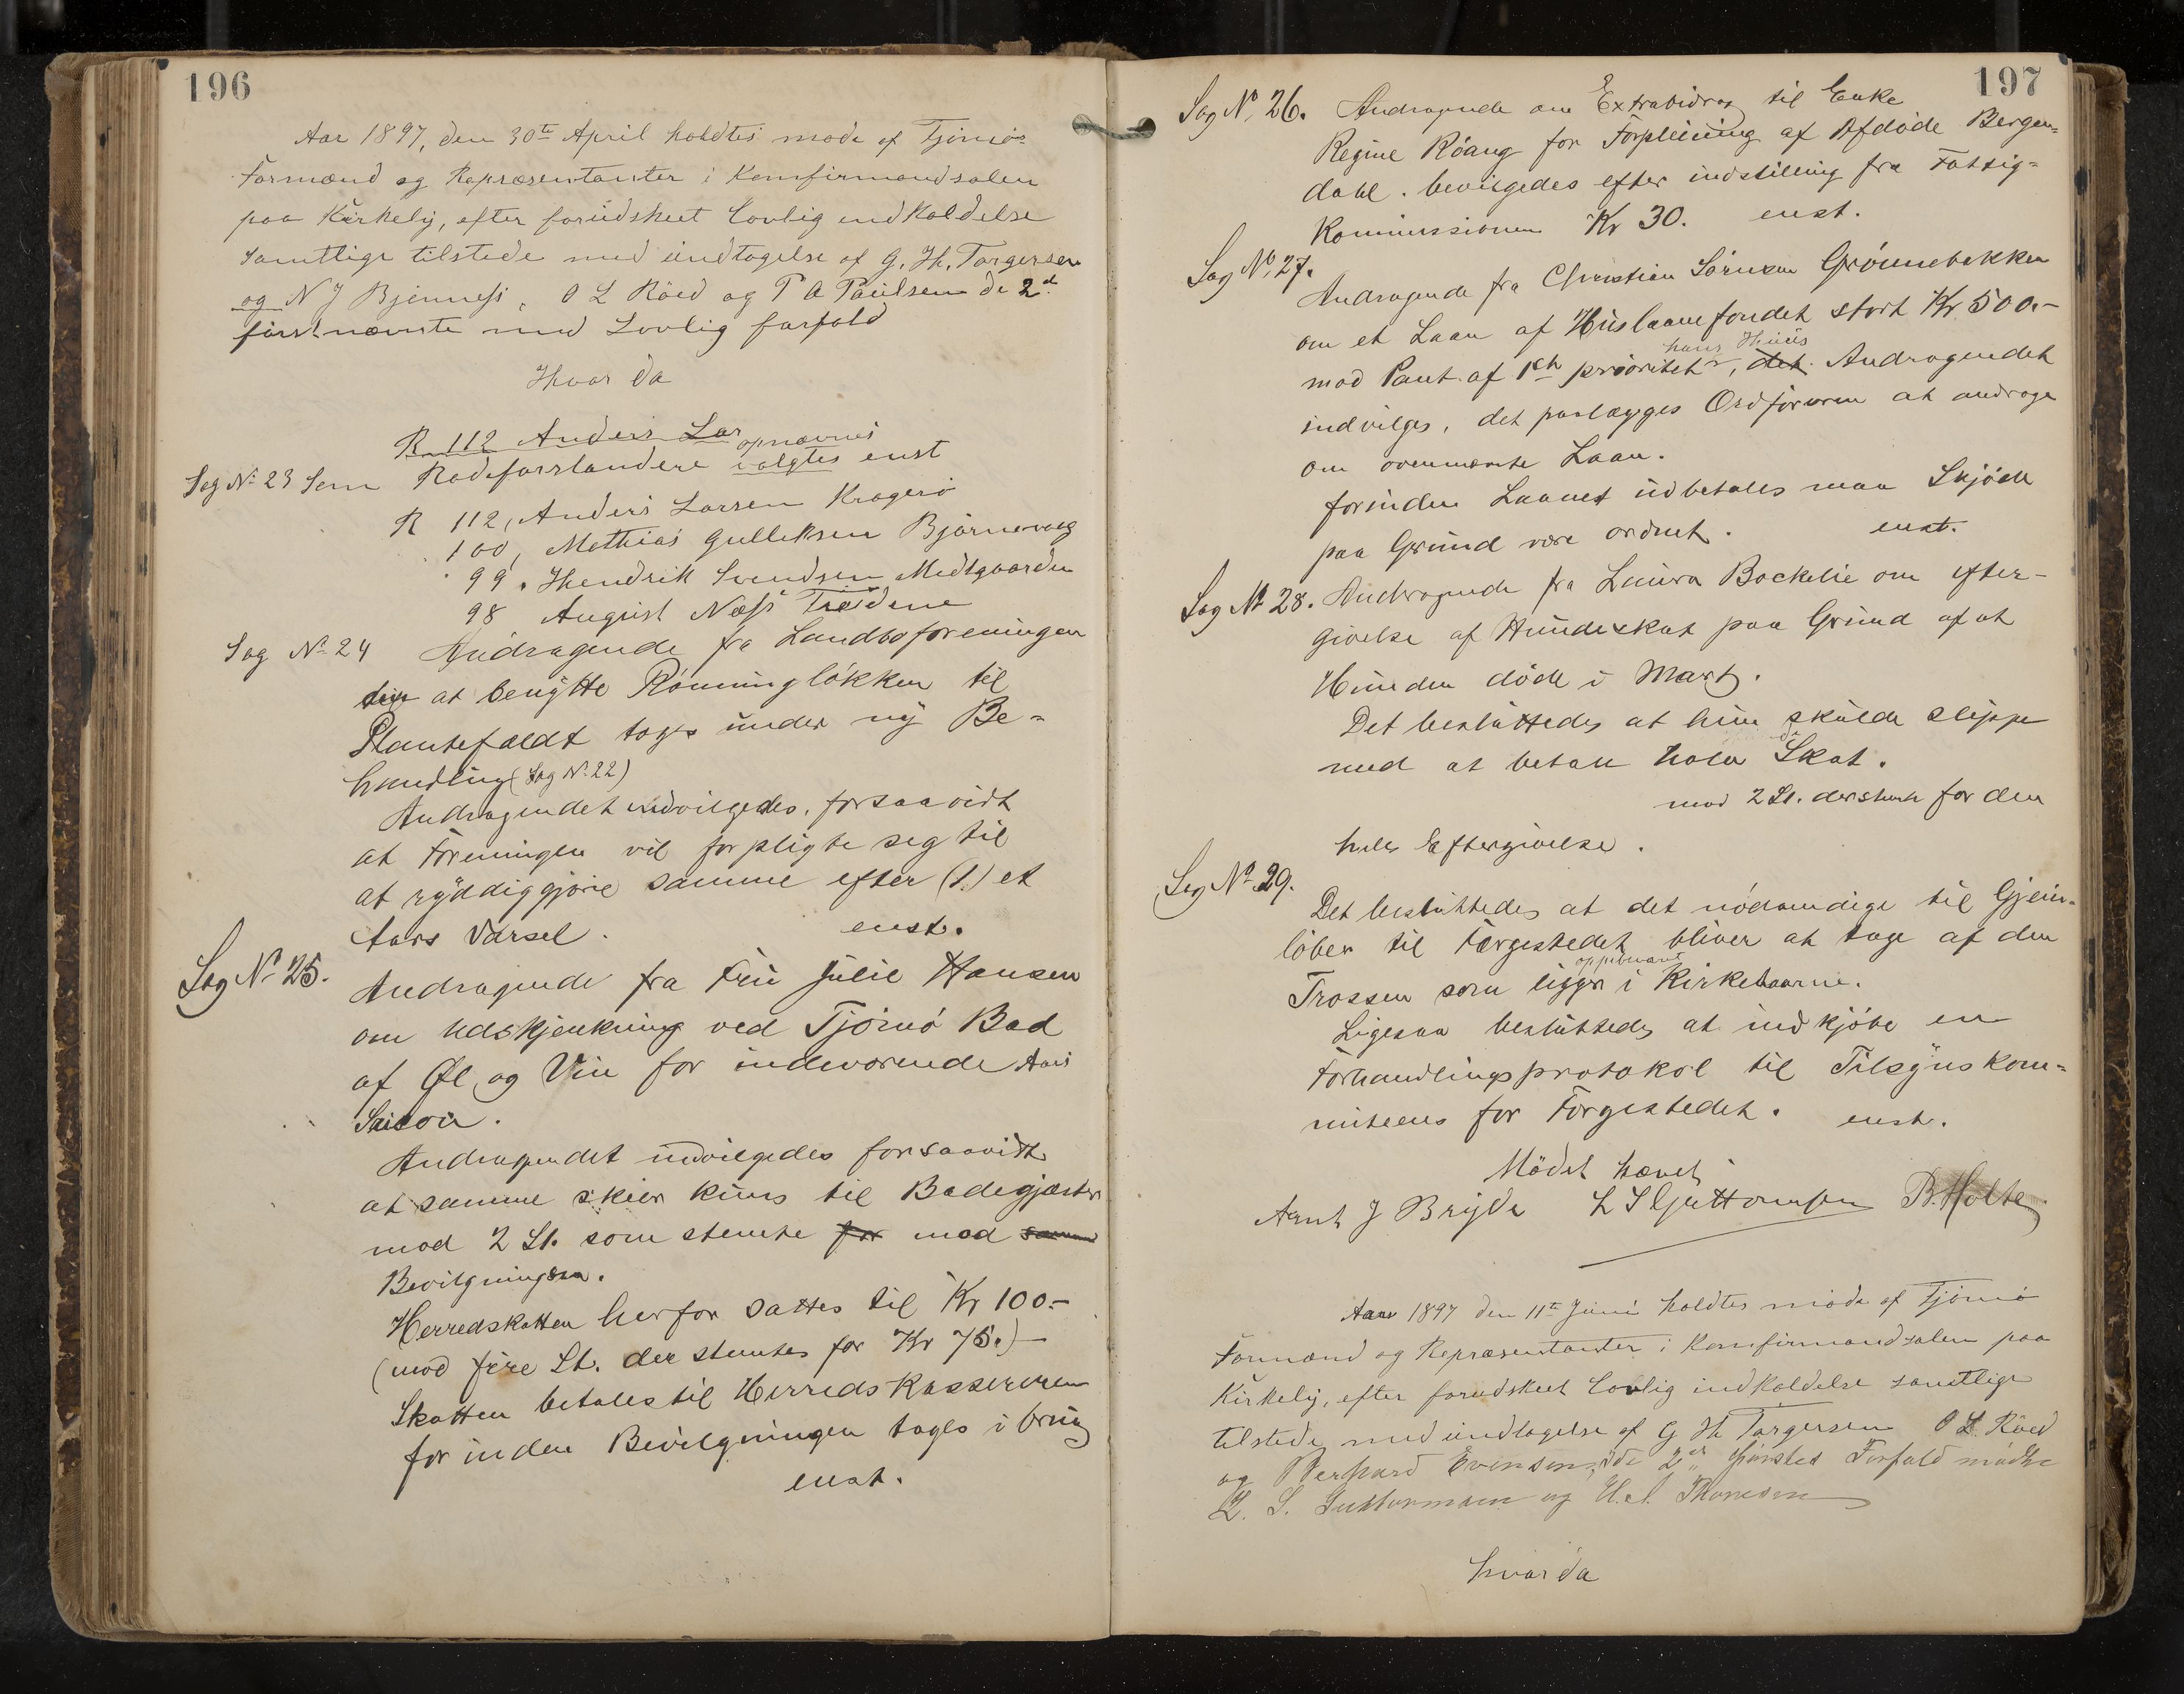 196
Aar 1897, den 30te April holdtes møde af Tjømø
Formænd og Repræsentanter i Konfirmandsalen
paa Kirkely, efter forudskeet Lovlig indkaldelse
samtlige tilstede med undtagelse af G. Th. Torgersen
og N J Bjønness, O L Röed og P A Paulsen de 2de
først nævnte med Lovlig forfald
Hvor da
R 112 Anders Lar
Sag No 23 Som Rodeforstandere valgtes opnævnes enst
R 112, Anders Larsen Kragerö
100, Mathias Gulleksen Bjørnevaag
99. Hendrik Svendsen Medtgaarden
98 August Næss Treidene
Sag No 24 Andragende fra Landboforeningen
at benytte Rönningløkken til
Plantefeldt toges under ny Be-
handling (Sag No 22)
Andragendet indvilgedes, forsaavidt
at Foreningen vil forpligte seg til
at ryddiggjöre samme efter (1.) et
Aars Varsel. enst.
Sag No 25. Andragende fra Fru Julie Hansen
om Udskjenkning ved Tjømø Bad
af Øl og Vin for indeværende Aars
Saison.
Andragendet indvilgedes forsaavidt
at samme skier kuns til Badegjæster
mod 2 St. som stemte for mod
Bevilgningen.
Herredskatten herfor sattes til Kr 100.-
(mod fire St. der stemtes for Kr 75.)-
Skatten betales til Herredskassereren
forinden Bevilgningen tages i brug
enst.
197
Sag No 26. Andragende om Extrabidrag til Enke
Regine Röang for Forpleining af Afdøde Bergen-
dahl. bevilgedes efter indstilling fra Fattig-
Kommissionen Kr 30. enst.
Sag No 27.
Andragende fra Christian Sörensen Grönnebakken
om et Laan af Huslaanefondet stort Kr 500.-
hans Huus
mod Pant af 1ste prioritet, det. Andragendet
indvilges, det paalægges Ordføreren at andrage
om ovennævnte Laan.
forinden Laanet udbetales maa Skjöde
paa Grund være ordnet. enst.
Sag No 28. Andragende fra Laura Bockelie om efter-
givelse af Hundeskat paa Grund af at
Hunden døde i Marts.
Det besluttedes at hun skulde slippe
med at betale halv Skat.
mod 2 St. der stemte for den
hele Eftergivelse.
Sag No 29.
Det besluttedes at det nödvendige til Gjen-
löber til Færgestedet bliver at tage af den
Trossen som ligger i Kirketaarne.
Ligesaa besluttedes at indkjöbe en
Forhandlingsprotokol til Tilsynskom-
miteens for Færgestedet. enst.
Mödet hævet
Arnt J Bryde L S Guttormsen B. Holte
Aar 1897 den 11te Juni holdtes møde af Tjømø
Formænd og Repræsentanter i Konfirmandsalen paa
Kirkely, efter forudskeet Lovlig indkaldelse samtlige
tilstede med undtagelse af G Th Torgersen O L Röed
og Bernhard Evensen, de 2de Forfald mødte
L. S. Guttormsen og Thomesen
hvor da